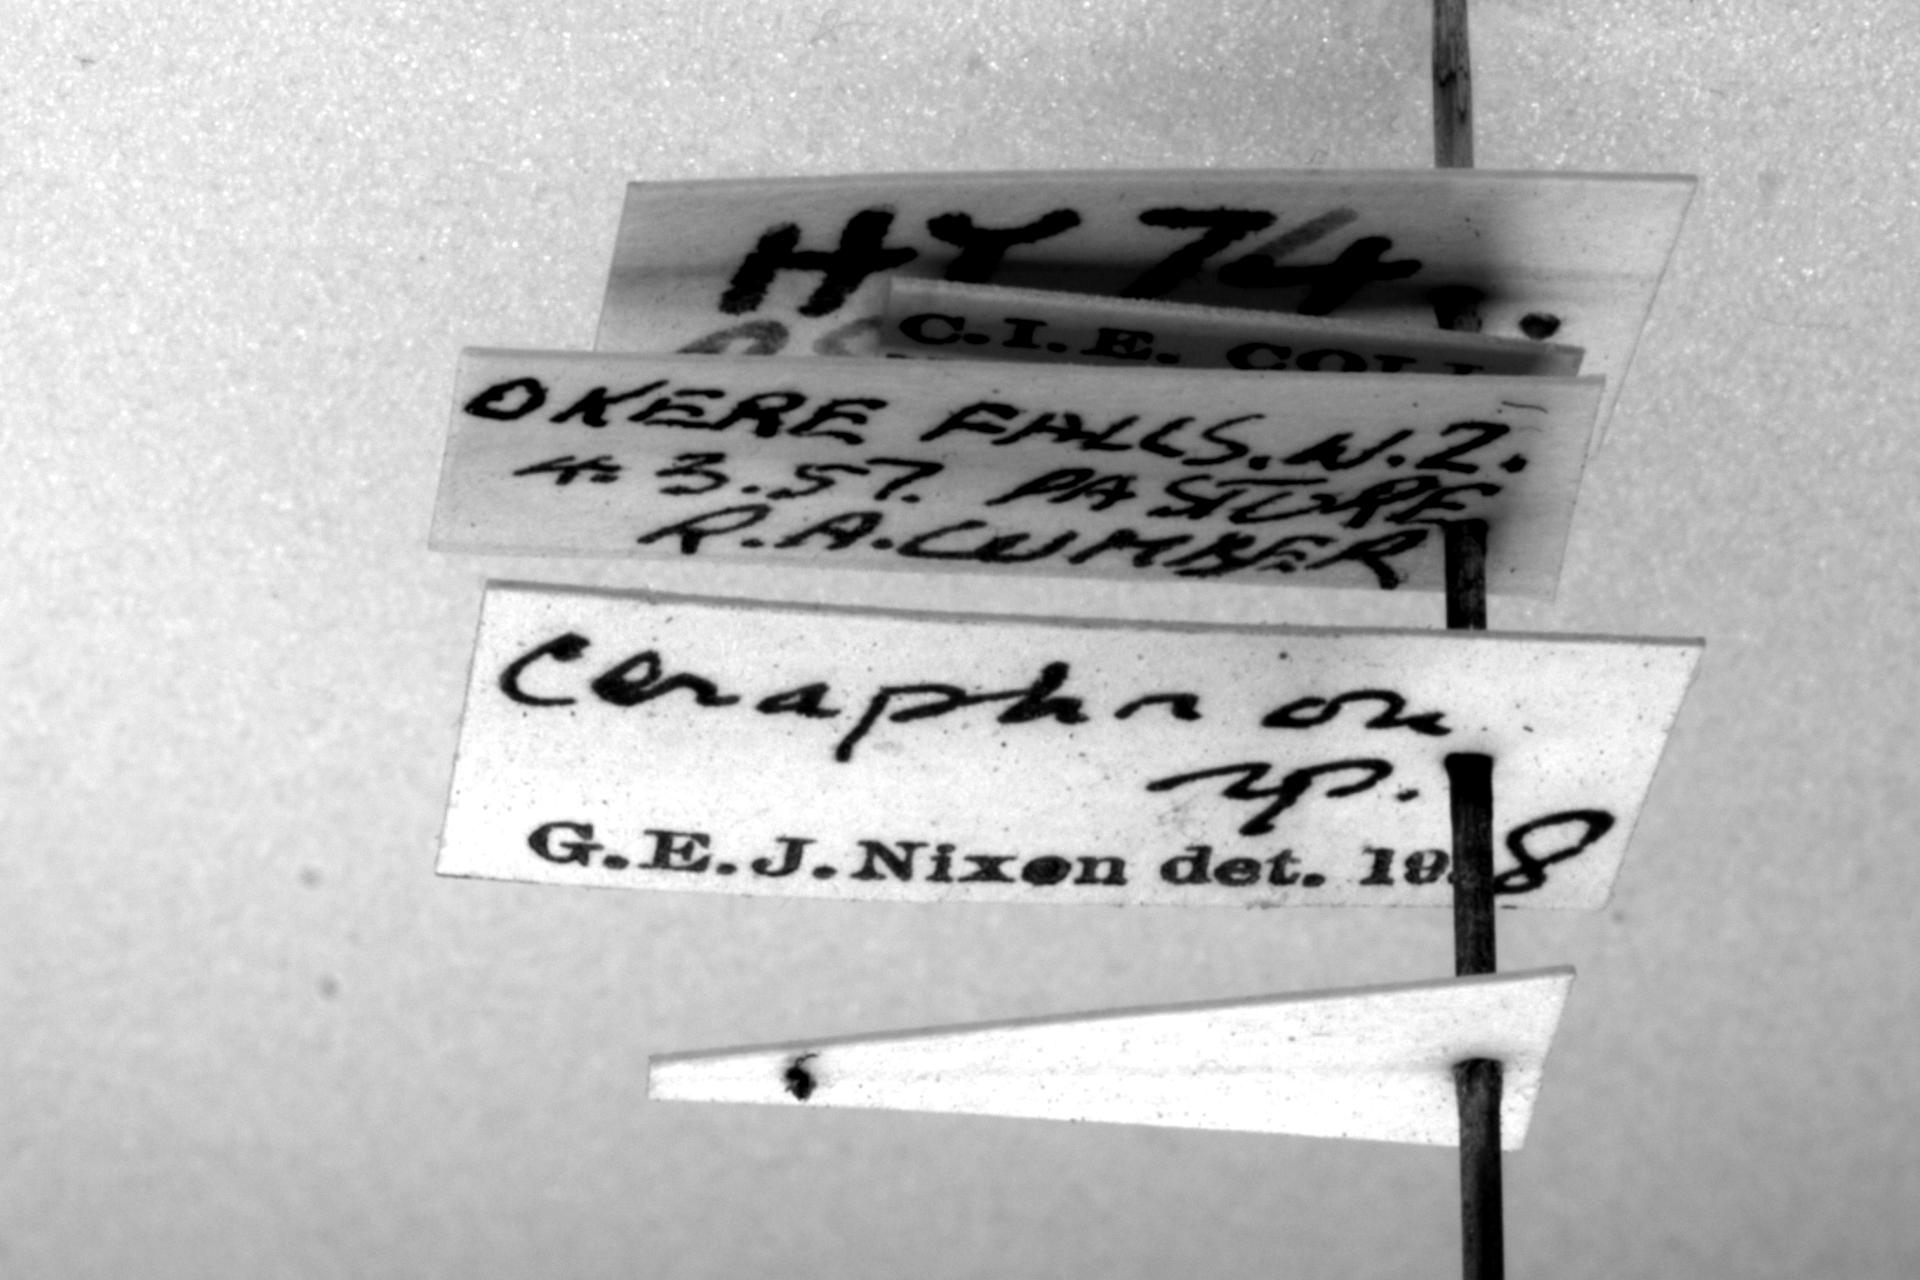 HY 74.
C.I.E. COLL
OKERE FALLS. N.Z.
4.3.57. PASTURE
R.A.CUMBER
Ceraphron
sp.
G.E.J.Nixon det. 19 8